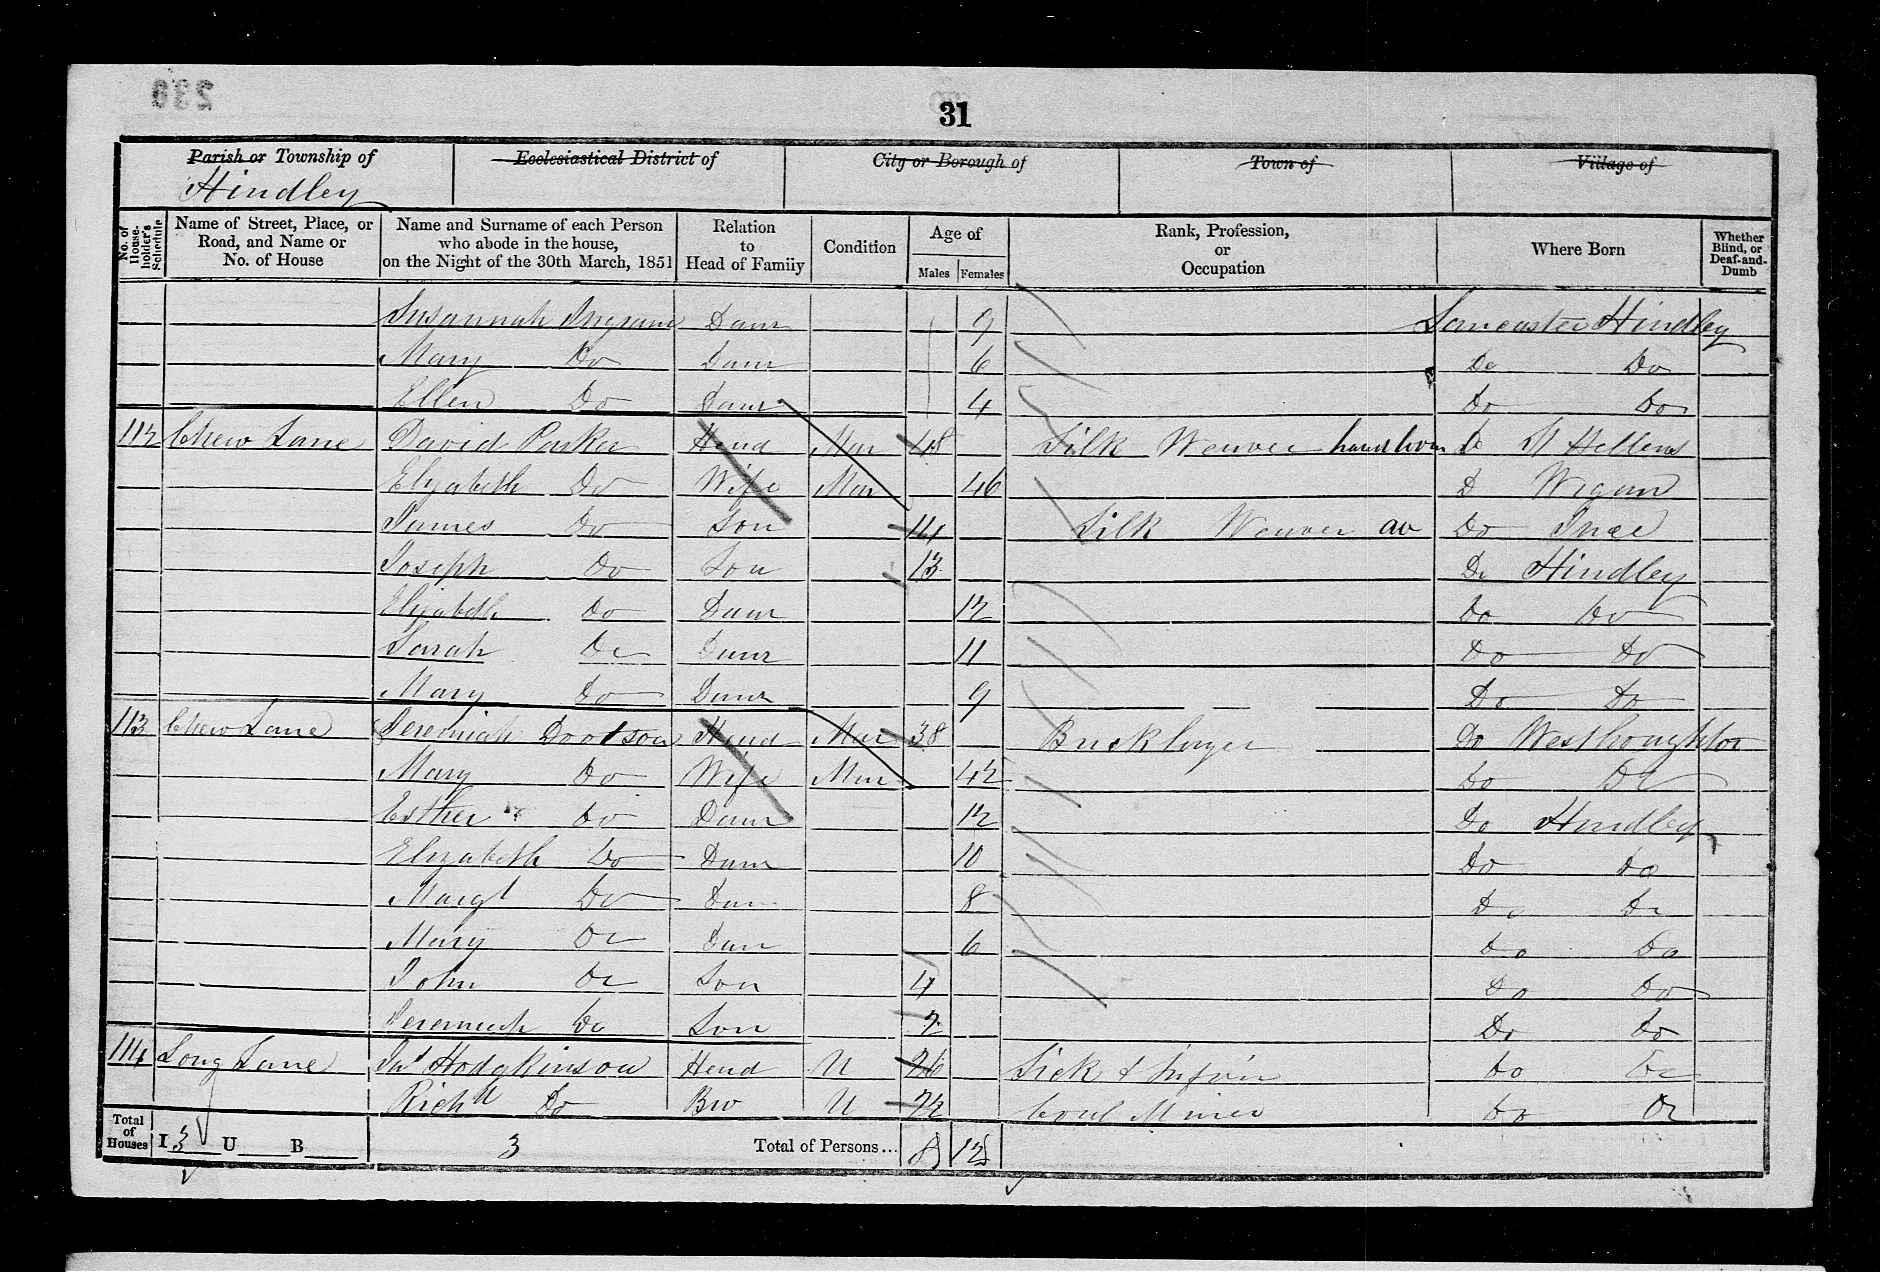 239
31
Parish or Township of Ecclesiastical District of City or Borough of Town of Village of
Hindley
No. of House-holder's Schedule Name of Street, Place, or Road, and Name or No. of House Name and Surname of each Person who abode in the house, on the Night of the 30th March, 1851 Relation to Head of Family Condition Age of Males Females Rank, Profession, or Occupation Where Born Whether Blind, or Deaf-and-Dumb
Susannah Ingram Daur 9 Lancaster Hindley
Mary Do Daur 6 Do Do
Ellen Do Daur 4 Do Do
112 Chew Lane David Parker Head Mar 48 Silk Weaver hand loom Do St Hellens
Elizabeth Do Wife Mar 46 D Wigan
James Do Son 14 Silk Weaver Do Ince
Joseph Do Son 13 Do Hindley
Elizabeth Do Daur 12 Do Do
Sarah Do Daur 11 Do Do
Mary Do Daur 9 Do Do
113 Chew Lane Jeremiah Dootson Head Mar 38 Bricklayer Do Westhoughton
Mary Do Wife Mar 42 Do Do
Esther Do Daur 12 Do Hindley
Elizabeth Do Daur 10 Do Do
Margt Do Daur 8 Do Do
Mary Do Daur 6 Do Do
John Do Son 4 Do Do
Jeremiah Do Son 2 Do Do
114 Long Lane Hodgkinson Head U 26 Sick & Infirm Do Do
Richd Do Bro U 22 Coal Miner Do Do
Total of Houses I 3 U B 3 Total of Persons... 8 15